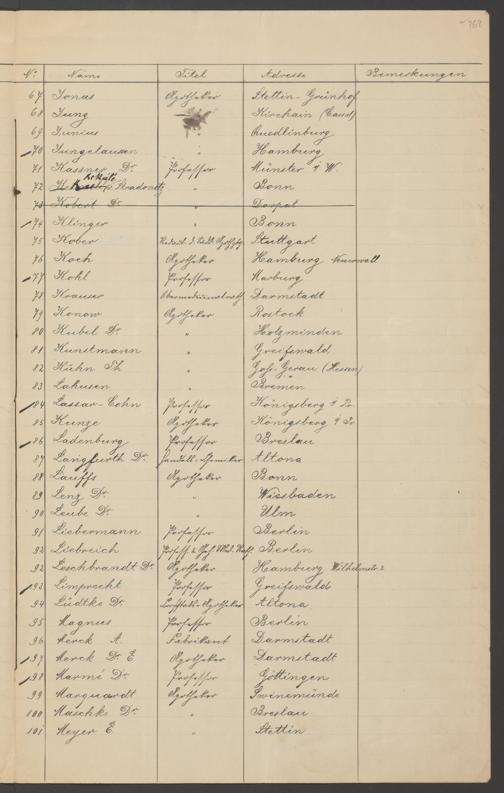 No. Name Titel Adresse Bemerkungen
67 Jonas Apotheker Stettin-Grünhof
68 Jung Kirchain
69 Junius " Quedlinburg
70 Jungclaussen " Hamburg
71 Kassner Dr. Professor Münster i/W.
72 Kekulé v. Stradonitz " Bonn
73 Kobert Dr " Dorpat
74 Klinger " Bonn
75 Kober Stuttgart
76 Koch Apotheker Hamburg Neuerwall
77 Kohl Professor Marburg
78 Krauser Obermedicinalrath Darmstadt
79 Konow Apotheker Rostock
80 Kubel Dr " Holzminden
81 Kunstmann " Greifswald
82 Kühn Th " Groß-Gerau (Hessen)
83 Lahusen " Bremen
84 Lassar-Cohn Professor Königsberg i/Pr.
85 Kunze Apotheker Königsberg i/Pr
86 Ladenburg Professor Breslau
87 Langfurth Dr. Handels-Chemiker Altona
88 Lauffs Apotheker Bonn
89 Lenz Dr. " Wiesbaden
90 Leube Dr. " Ulm
91 Liebermann Professor Berlin
92 Liebreich Berlin
92 Leschbrandt Dr. Apotheker Hamburg
93 Limpricht Professor Greifswald
94 Lüdtke Dr. Apotheker Altona
95 Magnus Professor Berlin
96 Merck A. Fabrikant Darmstadt
97 Merck Dr. E. Apotheker Darmstadt
98 Marmé Dr. Professor Göttingen
99 Marquardt Apotheker Swinemünde
100 Maschke Dr. " Breslau
101 Meyer E. " Stettin